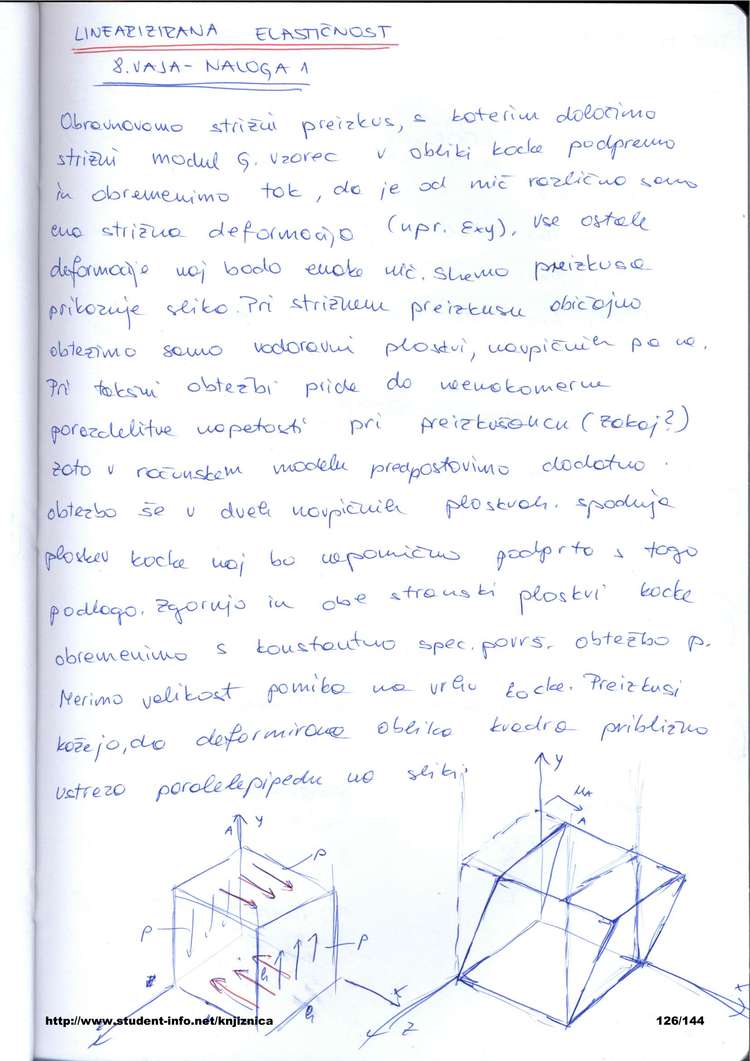 LINEARIZIRANA ELASTIČNOST
8. VAJA - NALOGA 1
Obravnavamo strižni preizkus, s katerim določimo
strižni modul G. Vzorec v obliki kocke podpremo
in obremenimo tak, da je od nič različno samo
ena strižna deformacija (npr. εxy), vse ostale
deformacije naj bodo enake nič. Shemo preizkusa
prikazuje slika. Pri strižnem preizkusu običajno
obtežimo samo vodoravni ploskvi, navpičnih pa ne.
Pri takšni obtežbi pride do neenakomerne
porazdelitve napetosti pri preizkušancu (zakaj?)
zato v računskem modelu predpostavimo dodatno
obtežbo še v dveh navpičnih ploskvah. spodnja
ploskev kocke naj bo nepomično podprta s togo
podlago. Zgornjo in obe stranski ploskvi kocke
obremenimo s konstantno spec. površ. obtežbo p.
Merimo velikost pomika na vrhu kocke. Preizkusi
kažejo, da deformirana oblika kvadra približno
ustreza paralelepipedu na sliki.
A y
p
p
p
a
x
z
y
uA
A
x
z
http://www.student-info.net/knjiznica
126/144